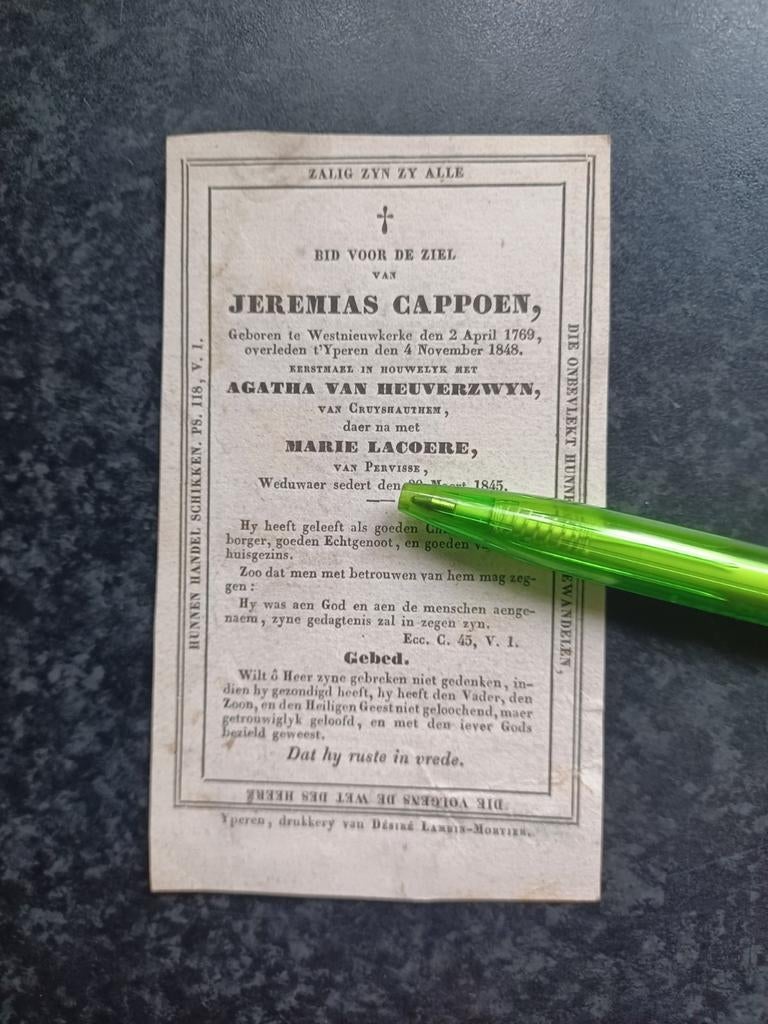 ZALIG ZYN ZY ALLE
DIE ONBEVLEKT HUNNE EWANDELEN,
DIE VOLGENS DE WET DES HEERE
HUNNEN HANDEL SCHIKKEN. PS. 118, V. 1.
BID VOOR DE ZIEL
VAN
JEREMIAS CAPPOEN,
Geboren te Westnieuwkerke den 2 April 1769,
overleden t'Yperen den 4 November 1848.
EERSTMAEL IN HOUWELYK MET
AGATHA VAN HEUVERZWYN,
VAN CRUYSHAUTHEM,
daer na met
MARIE LACOERE,
VAN PERVISSE,
Weduwaer sedert den Maert 1845.
Hy heeft geleeft als goeden
borger, goeden Echtgenoot, en goeden
huisgezins.
Zoo dat men met betrouwen van hem mag zeg-
gen :
Hy was aen God en aen de menschen aenge-
naem, zyne gedagtenis zal in zegen zyn.
Ecc. C. 45, V. 1.
Gebed.
Wilt ô Heer zyne gebreken niet gedenken, in-
dien hy gezondigd heeft, hy heeft den Vader, den
Zoon, en den Heiligen Geest niet geloochend, maer
getrouwiglyk geloofd, en met den iever Gods
bezield geweest.
Dat hy ruste in vrede.
Yperen, drukkery van DÉSIRÉ LAMBIN-MORTIER.